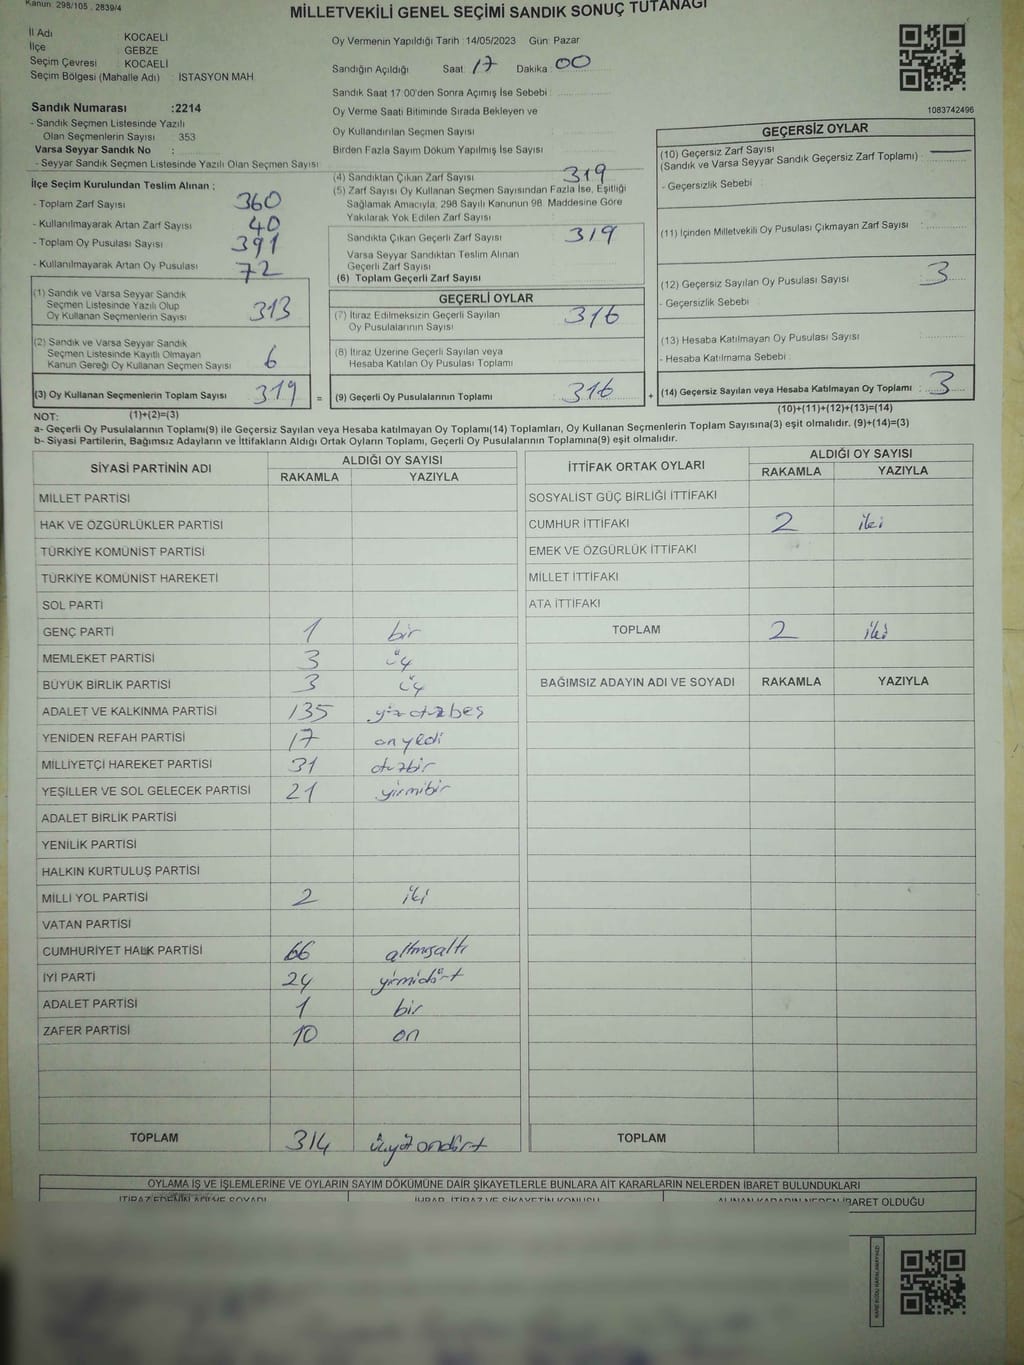 Kanun: 298/105, 2839/4
MİLLETVEKİLİ GENEL SEÇİMİ SANDIK SONUÇ TUTANAĞI
İl Adı KOCAELİ
İlçe : GEBZE
Seçim Çevresi : KOCAELİ
Seçim Bölgesi (Mahalle Adı) : İSTASYON MAH
Sandık Numarası :2214
- Sandık Seçmen Listesinde Yazılı
Olan Seçmenlerin Sayısı : 353
Varsa Seyyar Sandık No :
- Seyyar Sandık Seçmen Listesinde Yazılı Olan Seçmen Sayısı
Oy Vermenin Yapıldığı Tarih :14/05/2023 Gün: Pazar
Sandığın Açıldığı Saat 17 Dakika 00
Sandık Saat 17:00'den Sonra Açımış İse Sebebi :
Oy Verme Saati Bitiminde Sırada Bekleyen ve
Oy Kullandırılan Seçmen Sayısı
Birden Fazla Sayım Döküm Yapılmış İse Sayısı
1083742496
İlçe Seçim Kurulundan Teslim Alınan :
- Toplam Zarf Sayısı 360
- Kullanılmayarak Artan Zarf Sayısı 40
- Toplam Oy Pusulası Sayısı 391
- Kullanılmayarak Artan Oy Pusulası 72
(1) Sandık ve Varsa Seyyar Sandık
Seçmen Listesinde Yazılı Olup
Oy Kullanan Seçmenlerin Sayısı 313
(2) Sandık ve Varsa Seyyar Sandık
Seçmen Listesinde Kayıtlı Olmayan
Kanun Gereği Oy Kullanan Seçmen Sayısı 6
(3) Oy Kullanan Seçmenlerin Toplam Sayısı 319 =
(4) Sandıktan Çıkan Zarf Sayısı 319
(5) Zarf Sayısı Oy Kullanan Seçmen Sayısından Fazla İse, Eşitliği
Sağlamak Amacıyla, 298 Sayılı Kanunun 98. Maddesine Göre
Yakılarak Yok Edilen Zarf Sayısı
Sandıkta Çıkan Geçerli Zarf Sayısı 319
Varsa Seyyar Sandıktan Teslim Alınan
Geçerli Zarf Sayısı
(6) Toplam Geçerli Zarf Sayısı
GEÇERLİ OYLAR
(7) İtiraz Edilmeksizin Geçerli Sayılan
Oy Pusulalarının Sayısı 316
(8) İtiraz Üzerine Geçerli Sayılan veya
Hesaba Katılan Oy Pusulası Toplamı
(9) Geçerli Oy Pusulalarının Toplamı 316 +
GEÇERSİZ OYLAR
(10) Geçersiz Zarf Sayısı
(Sandık ve Varsa Seyyar Sandık Geçersiz Zarf Toplamı) :
- Geçersizlik Sebebi :
(11) İçinden Milletvekili Oy Pusulası Çıkmayan Zarf Sayısı
(12) Geçersiz Sayılan Oy Pusulası Sayısı 3
- Geçersizlik Sebebi
(13) Hesaba Katılmayan Oy Pusulası Sayısı
- Hesaba Katılmama Sebebi :
(14) Geçersiz Sayılan veya Hesaba Katılmayan Oy Toplamı : 3
(10)+(11)+(12)+(13)=(14)
NOT: (1)+(2)=(3)
a- Geçerli Oy Pusulalarının Toplamı(9) ile Geçersiz Sayılan veya Hesaba katılmayan Oy Toplamı(14) Toplamları, Oy Kullanan Seçmenlerin Toplam Sayısına(3) eşit olmalıdır. (9)+(14)=(3)
b- Siyasi Partilerin, Bağımsız Adayların ve İttifakların Aldığı Ortak Oyların Toplamı, Geçerli Oy Pusulalarının Toplamına(9) eşit olmalıdır.
SİYASİ PARTİNİN ADI ALDIĞI OY SAYISI
RAKAMLA YAZIYLA
MİLLET PARTİSİ
HAK VE ÖZGÜRLÜKLER PARTİSİ
TÜRKİYE KOMÜNİST PARTİSİ
TÜRKİYE KOMÜNİST HAREKETİ
SOL PARTİ
GENÇ PARTİ 1 bir
MEMLEKET PARTİSİ 3 üç
BÜYÜK BİRLİK PARTİSİ 3 üç
ADALET VE KALKINMA PARTİSİ 135 yüzotuzbeş
YENİDEN REFAH PARTİSİ 17 onyedi
MİLLİYETÇİ HAREKET PARTİSİ 31 otuzbir
YEŞİLLER VE SOL GELECEK PARTİSİ 21 yirmibir
ADALET BİRLİK PARTİSİ
YENİLİK PARTİSİ
HALKIN KURTULUŞ PARTİSİ
MİLLİ YOL PARTİSİ 2 iki
VATAN PARTİSİ
CUMHURİYET HALK PARTİSİ 66 altmışaltı
İYİ PARTİ 24 yirmidört
ADALET PARTİSİ 1 bir
ZAFER PARTİSİ 10 on
TOPLAM 314 üçyüzondört
İTTİFAK ORTAK OYLARI ALDIĞI OY SAYISI
RAKAMLA YAZIYLA
SOSYALİST GÜÇ BİRLİĞİ İTTİFAKI
CUMHUR İTTİFAKI 2 iki
EMEK VE ÖZGÜRLÜK İTTİFAKI
MİLLET İTTİFAKI
ATA İTTİFAKI
TOPLAM 2 iki
BAĞIMSIZ ADAYIN ADI VE SOYADI RAKAMLA YAZIYLA
TOPLAM
OYLAMA İŞ VE İŞLEMLERİNE VE OYLARIN SAYIM DÖKÜMÜNE DAİR ŞİKAYETLERLE BUNLARA AİT KARARLARIN NELERDEN İBARET BULUNDUKLARI
İTİRAZ EDENİN ADI VE SOYADI İHBAR, İTİRAZ VE ŞİKAYETİN KONUSU ALINAN KARARIN NEDEN İBARET OLDUĞU